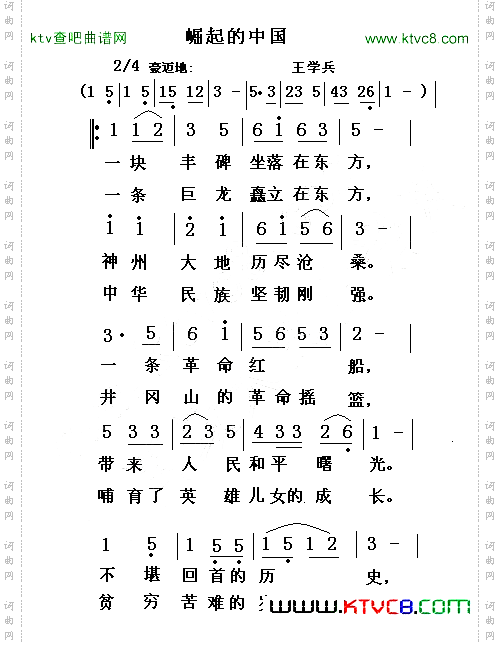 ktv查吧曲谱网 崛起的中国 www.ktvc8.com
2/4 豪迈地: 王学兵
(1 5|1 5|15 12|3 -|5·3|23 5|43 26|1 -)
‖: 1 12|3 5|6i 63|5 -|
一块 丰碑 坐落在东 方,
一条 巨龙 矗立在东 方,
i i|2 i|6i 56|3 -|
神州 大地 历尽沧 桑。
中华 民族 坚韧刚 强。
3· 5|6 i|5653|2 -|
一条革命红 船,
井冈山的革命摇 篮,
5 33|23 5|4 33 26|1 -|
带来 人民和平 曙 光。
哺育了 英雄儿女的 成 长。
1 5|1 55|1512|3 -|
不堪回首的历 史,
贫穷苦难的
www.KTVC8.com
词曲网 词曲网 词曲网 词曲网 词曲网 词曲网
词曲网 词曲网 词曲网 词曲网 词曲网 词曲网